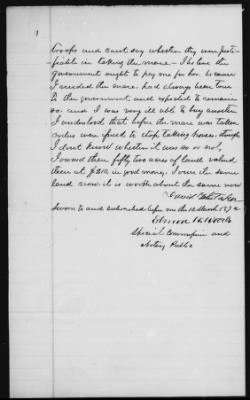 troops and cant say whether they were justi-
fiable in taking the mare - I believe the
government ought to pay me for her because
I needed the mare. had always been true
to the government and expected to remain
so. and I was very ill able to buy another
I understood that before the mare was taken
orders were issued to stop taking horses. though
I dont know whether it was so or not.
I owned then fifty two acres of land valued
then at in good money. I own the same
land now it is worth about the same now
David
Sworn to and subscribed before me this March
Special Commissioner and
Notary Public